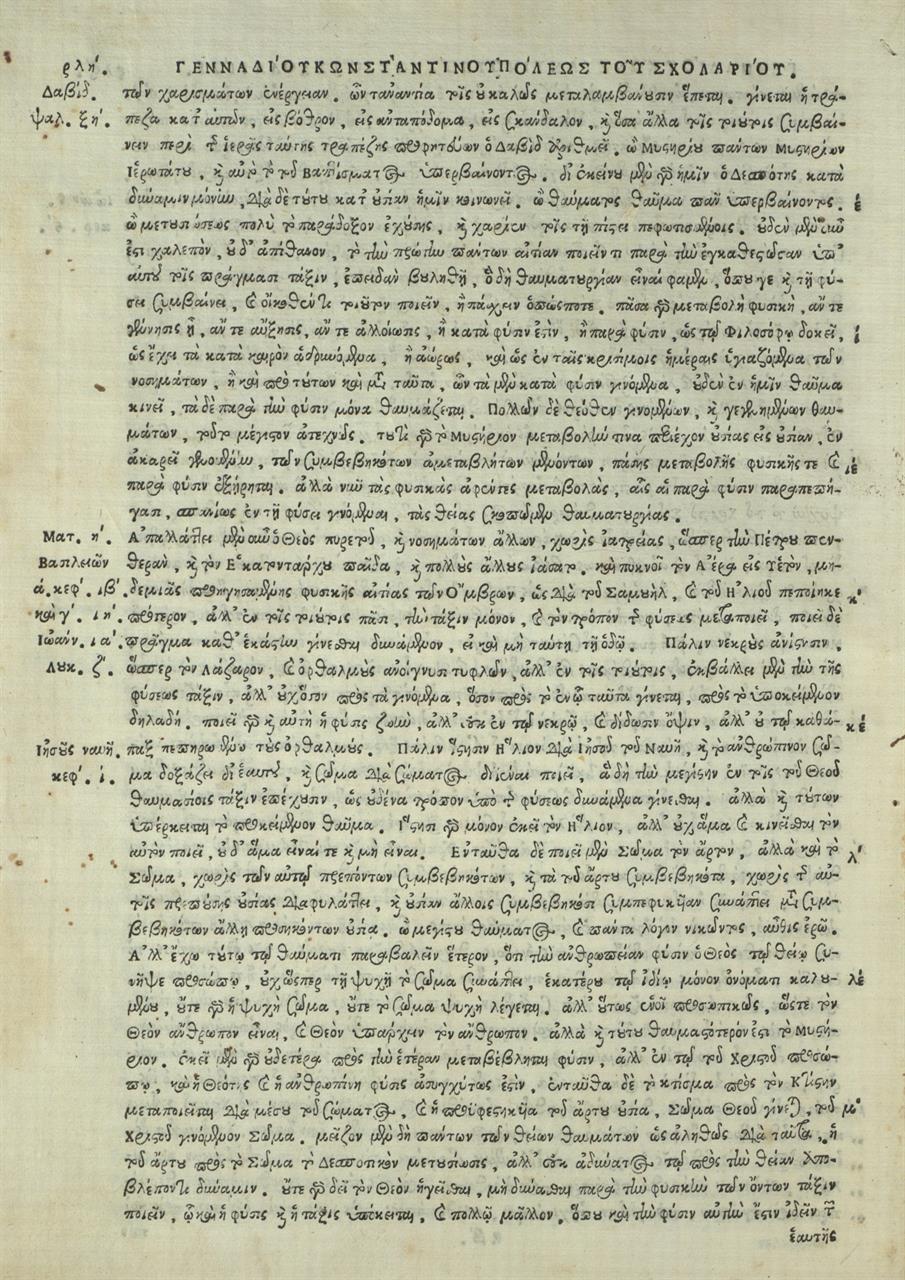 ρλη΄. ΓΕΝΝΑΔΙΟΥ ΚΩΝΣΤΑΝΤΙΝΟΥΠΟΛΕΩΣ ΤΟΥ ΣΧΟΛΑΡΙΟΥ.
Δαβίδ. τῶν χαρισμάτων ἐνέργειαν. ὧν τἀναντία τοῖς οὐ καλῶς μεταλαμβάνουσιν ἕπεται. γίνεται ἡ τρά-
ψαλ. ξη΄. πεζα κατ' αὐτῶν, εἰς βόθρον, εἰς ἀνταπόδομα, εἰς σκάνδαλον, καὶ ὅσα ἄλλα τοῖς τοιούτοις συμβαί-
νειν περὶ τῆς ἱερᾶς ταύτης τραπέζης προφητεύων ὁ Δαβὶδ ἀριθμεῖ. ὦ Μυστηρίου πάντων Μυστηρίων
ἱερωτάτου, καὶ αὐτὸ τὸ τοῦ Βαπτίσματος ὑπερβαίνοντος. δι' ἐκείνου μὲν γὰρ ἡμῖν ὁ Δεσπότης κατὰ
δύναμιν μόνην, διὰ δὲ τούτου κατ' οὐσίαν ἡμῖν κοινωνεῖ. ὢ θαύματος θαῦμα πᾶν ὑπερβαίνοντος. ε΄
ὢ μετουσιώσεως πολὺ τὸ παράδοξον ἐχούσης, καὶ χαρίεν τοῖς τῇ πίστει πεφωτισμένοις. οὐδὲν μὲν οὖν
ἐστι χαλεπὸν, οὐδ' ἀπίθανον, τὸ τὴν πρώτην πάντων αἰτίαν ποιεῖν τι παρὰ τὴν ἐγκαθεστῶσαν ὑπ'
αὐτοῦ τοῖς πράγμασι τάξιν, ἐπειδὰν βουληθῇ, ὃ δὴ θαυματουργίαν εἶναι φαμὲν, ὅπου γε καὶ τῇ φύ-
σει συμβαίνει, καὶ οἴκοθέν τι τοιοῦτον ποιεῖν, ἢ πάσχειν ὁπώσποτε. πᾶσα γὰρ μεταβολὴ φυσικὴ, ἄν τε
γέννησις ᾖ, ἄν τε αὔξησις, ἄν τε ἀλλοίωσις, ἢ κατὰ φύσιν ἐστὶν, ἢ παρὰ φύσιν, ὡς τῷ Φιλοσόφῳ δοκεῖ, ι΄
ὡς ἔχει τὰ κατὰ καιρὸν ἁδρυνόμενα, ἢ ἀώρως, καὶ ὡς ἐν ταῖς κρισίμοις ἡμέραις ὑγιαζόμενα τῶν
νοσημάτων, ἢ καὶ πρὸ τούτων καὶ μετὰ ταῦτα, ὧν τὰ μὲν κατὰ φύσιν γινόμενα, οὐδὲν ἐν ἡμῖν θαῦμα
κινεῖ, τὰ δὲ παρὰ τὴν φύσιν μόνα θαυμάζεται. Πολλῶν δὲ θεόθεν γινομένων, καὶ γεγενημένων θαυ-
μάτων, τοῦτο μέγιστον ἀτεχνῶς. τουτὶ γὰρ τὸ Μυστήριον μεταβολήν τινα περιέχον οὐσίας εἰς οὐσίαν, ἐν
ἀκαρεῖ γινομένην, τῶν συμβεβηκότων ἀμεταβλήτων μενόντων, πάσης μεταβολῆς φυσικῆς τε καὶ ιε΄
παρὰ φύσιν ἐξῄρηται. ἀλλὰ νῦν τὰς φυσικὰς ἀφέντες μεταβολὰς, αἷς αἱ παρὰ φύσιν παραπεπή-
γασι, σπανίως ἐν τῇ φύσει γινόμεναι, τὰς θείας σκοπῶμεν θαυματουργίας.
Ματ. η΄. Ἀπαλλάττει μὲν οὖν ὁ Θεὸς πυρετοῦ, καὶ νοσημάτων ἄλλων, χωρὶς ἰατρείας, ὥσπερ τὴν Πέτρου πεν-
Βασιλειῶν θερὰν, καὶ τὸν Ἑκατοντάρχου παῖδα, καὶ πολλοὺς ἄλλους ἰάσατο. καὶ πυκνοῖ τὸν Ἀέρα εἰς Ὑετὸν, μη-
ά. κεφ. ιβ΄ δεμιᾶς προηγησαμένης φυσικῆς αἰτίας τῶν Ὄμβρων, ὡς διὰ τοῦ Σαμουὴλ, καὶ τοῦ Ἠλιοῦ πεποίηκε κ΄
καὶ γ΄. ιη΄ πρότερον, ἀλλ' ἐν τοῖς τοιούτοις πᾶσι, τὴν τάξιν μόνον, καὶ τὸν τρόπον τῆς φύσεως μεταποιεῖ, ποιεῖ δὲ
Ἰωάνν. ια΄. πρᾶγμα καθ' ἑκάστην γίνεσθαι δυνάμενον, εἰ καὶ μὴ ταύτῃ τῇ ὁδῷ. Πάλιν νεκροὺς ἀνίστησιν,
Λυκ. ζ΄. ὥσπερ τὸν Λάζαρον, καὶ ὀφθαλμοὺς ἀνοίγνυσι τυφλῶν, ἀλλ' ἐν τοῖς τοιούτοις, ἐκβάλλει μὲν τὴν τῆς
φύσεως τάξιν, ἀλλ' οὐχ ὅσον πρὸς τὰ γινόμενα, ὅσον πρὸς τὸ ἐν ᾧ ταῦτα γίνεται, πρὸς τὸ ὑποκείμενον
δηλαδή. ποιεῖ γὰρ καὶ αὐτὴ ἡ φύσις ζωὴν, ἀλλ' οὐκ ἐν τῷ νεκρῷ, καὶ δίδωσιν ὄψιν, ἀλλ' οὐ τῷ καθά- κε΄
Ἰησοῦς ναυῆ. παξ πεπηρωμένῳ τοὺς ὀφθαλμούς. Πάλιν ἵστησιν Ἥλιον διὰ Ἰησοῦ τοῦ Ναυῆ, καὶ τὸ ἀνθρώπινον σῶ-
κεφ. ι. μα δοξάζει δι' ἑαυτοῦ, καὶ σῶμα διὰ σώματος διιέναι ποιεῖ, ἃ δὴ τὴν μεγίστην ἐν τοῖς τοῦ Θεοῦ
θαυμασίοις τάξιν ἐπέχουσιν, ὡς οὐδένα τρόπον ὑπὸ τῆς φύσεως δυνάμενα γίνεσθαι. ἀλλὰ καὶ τούτων
ὑπέρκειται τὸ προκείμενον θαῦμα. Ἵστησι γὰρ μόνον ἐκεῖ τὸν Ἥλιον, ἀλλ' οὐχ ἅμα καὶ κινεῖσθαι τὸν
αὐτὸν ποιεῖ, οὐδ' ἅμα εἶναί τε καὶ μὴ εἶναι. Ἐνταῦθα δὲ ποιεῖ μὲν Σῶμα τὸν ἄρτον, ἀλλὰ καὶ τὸ λ΄
Σῶμα, χωρὶς τῶν αὐτῷ πρεπόντων συμβεβηκότων, καὶ τὰ τοῦ ἄρτου συμβεβηκότα, χωρὶς τῆς αὐ-
τοῖς πρεπούσης οὐσίας διαφυλάττει, καὶ οὐσίαν ἄλλοις συμβεβηκόσι συμπεφυκυῖαν συνάπτει μετὰ συμ-
βεβηκότων ἄλλῃ προσηκόντων οὐσίᾳ. ὢ μεγίστου θαύματος, καὶ πάντα λόγον νικῶντος, αὖθις ἐρῶ.
Ἀλλ' ἔχω τούτῳ τῷ θαύματι παραβαλεῖν ἕτερον, ὅτι τὴν ἀνθρωπείαν φύσιν ὁ Θεὸς τῷ θείῳ συ-
νῆψε προσώπῳ, οὐχ ὥσπερ τῇ ψυχῇ τὸ σῶμα συνάπτει, ἑκατέρου τῷ ἰδίῳ μόνον ὀνόματι καλου- λε΄
μένου, οὔτε γὰρ ἡ ψυχὴ σῶμα, οὔτε τὸ σῶμα ψυχὴ λέγεται. ἀλλ' οὕτως ἑνοῖ προσωπικῶς, ὥστε τὸν
Θεὸν ἄνθρωπον εἶναι, καὶ Θεὸν ὑπάρχειν τὸν ἄνθρωπον. ἀλλὰ καὶ τούτου θαυμαστότερόν ἐστι τὸ Μυστή-
ριον. ἐκεῖ μὲν γὰρ οὐδετέρα πρὸς τὴν ἑτέραν μεταβέβληται φύσιν, ἀλλ' ἐν τῷ τοῦ Χριστοῦ προσώ-
πῳ, καὶ ἡ Θεότης καὶ ἡ ἀνθρωπίνη φύσις ἀσυγχύτως ἐστὶν, ἐνταῦθα δὲ τὸ κτίσμα πρὸς τὸν Κτίστην
μεταποιεῖται διὰ μέσου τοῦ σώματος, καὶ ἡ προϋφεστηκυῖα τοῦ ἄρτου οὐσία, Σῶμα Θεοῦ γίνεται, τοῦ μ΄
Χριστοῦ γινόμενον Σῶμα. μεῖζον μὲν δὴ πάντων τῶν θείων θαυμάτων ὡς ἀληθῶς διὰ ταῦτα, ἡ
τοῦ ἄρτου πρὸς τὸ Σῶμα τὸ Δεσποτικὸν μετουσίωσις, ἀλλ' οὐκ ἀδύνατος τῷ πρὸς τὴν θείαν ἀπο-
βλέποντι δύναμιν. οὔτε γὰρ δεῖ τὸν Θεὸν ἡγεῖσθαι, μὴ δύνασθαι παρὰ τὴν φυσικὴν τῶν ὄντων τάξιν
ποιεῖν, ᾧ καὶ ἡ φύσις καὶ ἡ τάξις ὑπόκειται, καὶ πολλῷ μᾶλλον, ὅπου καὶ τὴν φύσιν αὐτὴν ἔστιν ἰδεῖν τῆς
ἑαυτῆς